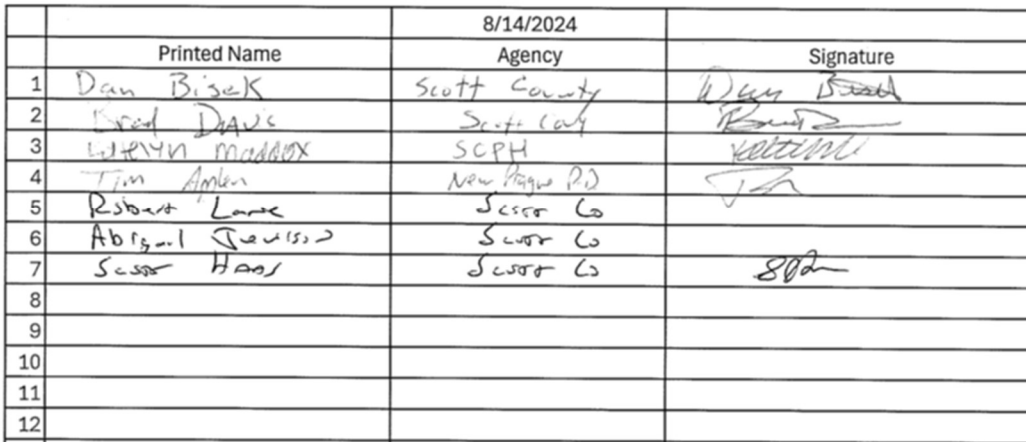 8/14/2024
Printed Name Agency Signature
1 Dan Bisek Scott County Dan
2 Brad Davis Scott
3 maddox SCPH
4 Tim New Prague P.D
5 Robert Scott Co
6 Abigail Scott Co
7 Scott Haas Scott Co
8
9
10
11
12